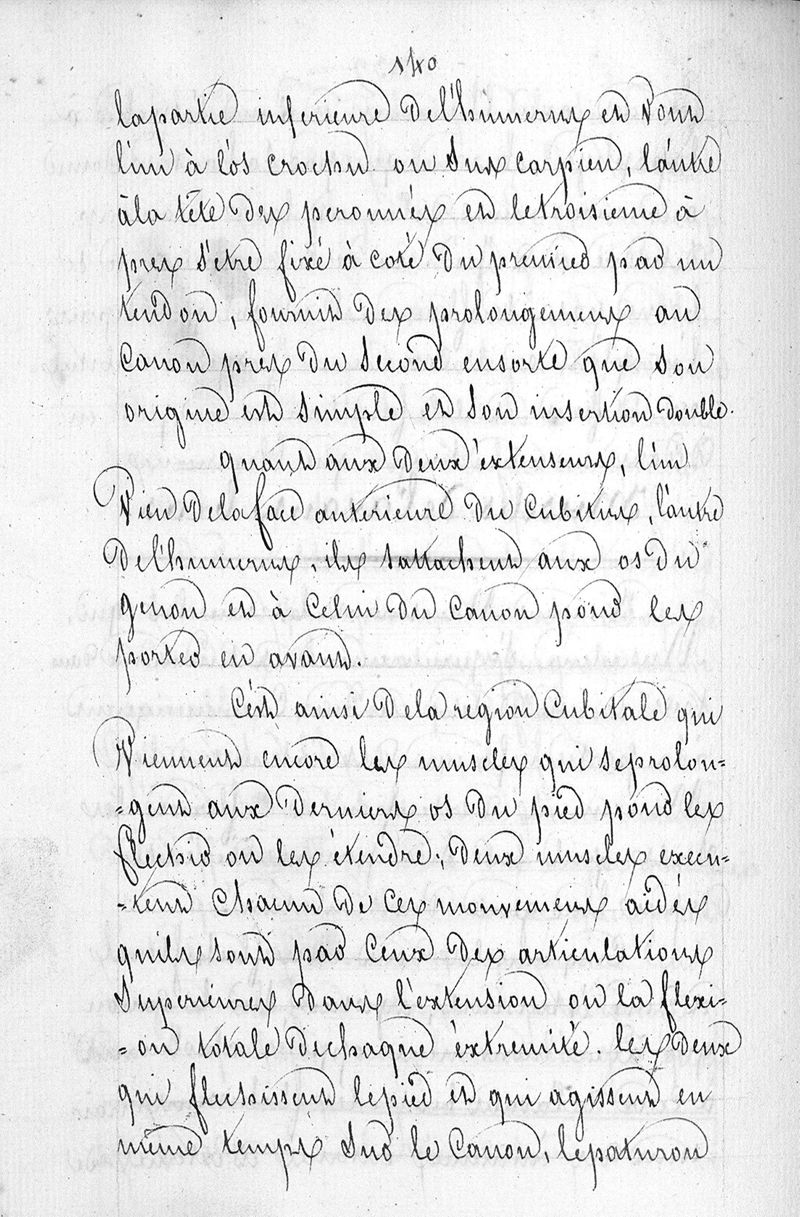 140
lapartie inferieure del'humerus et vont
l'un à l'os crochu ou sus carpien, l'autre
à la tête des peronnés et letroisieme a
pres s'etre fixé à coté du premier par un
tendon, fournit des prolongements au
canon pres du second ensorte que son
origine est simple et son insertion double.
quant aux deux extenseurs, l'un
vien delaface anterieure du cubitus, l'autre
del'humerus, ils sattachent aux os du
genou et à celui du canon pour les
porter en avant.
C'est ainsi dela region cubitale qui
viennent encore les muscles qui seprolon=
=gent aux derniers os du pied pour les
flechir ou les étendre; deux muscles execu=
=tent chacun de ces mouvements aidés
quils sont par ceux des articulations
superieures dans l'extension ou la flexi=
=on totale dechaque extremité. les deux
qui flechissent lepied et qui agissent en
même temps sur le canon, lepaturon